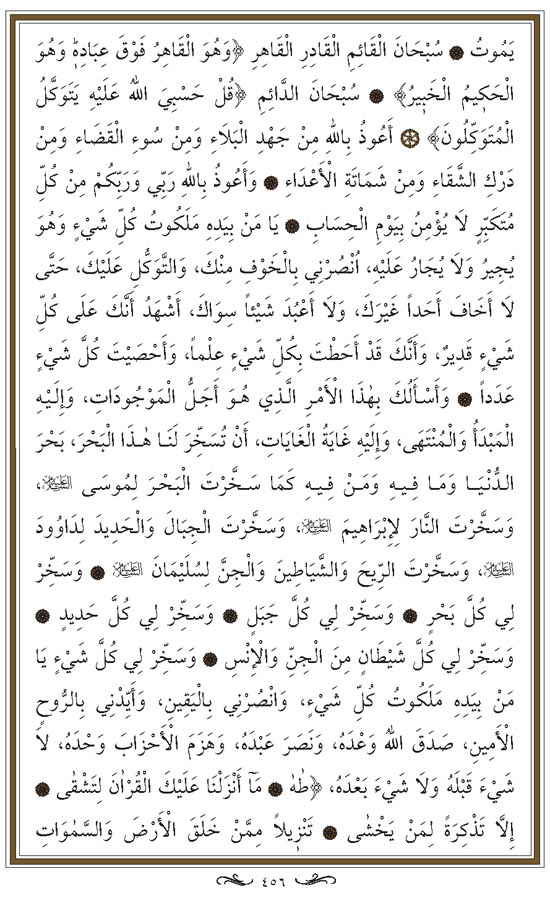 يَمُوتُ ۞ سُبْحَانَ الْقَائِمِ الْقَادِرِ الْقَاهِرِ ﴿وَهُوَ الْقَاهِرُ فَوْقَ عِبَادِهِۚ وَهُوَ
الْحَكِيمُ الْخَبِيرُ﴾ ۞ سُبْحَانَ الدَّائِمِ ﴿قُلْ حَسْبِيَ اللهُ عَلَيْهِ يَتَوَكَّلُ
الْمُتَوَكِّلُونَ﴾ ۞ أَعُوذُ بِاللهِ مِنْ جَهْدِ الْبَلَاءِ وَمِنْ سُوءِ الْقَضَاءِ وَمِنْ
دَرْكِ الشَّقَاءِ وَمِنْ شَمَاتَةِ الْأَعْدَاءِ ۞ وَأَعُوذُ بِاللهِ رَبِّي وَرَبِّكُمْ مِنْ كُلِّ
مُتَكَبِّرٍ لَا يُؤْمِنُ بِيَوْمِ الْحِسَابِ ۞ يَا مَنْ بِيَدِهِ مَلَكُوتُ كُلِّ شَيْءٍ وَهُوَ
يُجِيرُ وَلَا يُجَارُ عَلَيْهِ، اُنْصُرْنِي بِالْخَوْفِ مِنْكَ، وَالتَّوَكُّلِ عَلَيْكَ، حَتَّى
لَا أَخَافَ أَحَداً غَيْرَكَ، وَلَا أَعْبُدَ شَيْئاً سِوَاكَ، أَشْهَدُ أَنَّكَ عَلَى كُلِّ
شَيْءٍ قَدِيرٌ، وَأَنَّكَ قَدْ أَحَطْتَ بِكُلِّ شَيْءٍ عِلْماً، وَأَحْصَيْتَ كُلَّ شَيْءٍ
عَدَداً ۞ وَأَسْأَلُكَ بِهٰذَا الْأَمْرِ الَّذِي هُوَ أَجَلُّ الْمَوْجُودَاتِ، وَإِلَيْهِ
الْمَبْدَأُ وَالْمُنْتَهَى، وَإِلَيْهِ غَايَةُ الْغَايَاتِ، أَنْ تُسَخِّرَ لَنَا هٰذَا الْبَحْرَ، بَحْرَ
الدُّنْيَا وَمَا فِيهِ وَمَنْ فِيهِ كَمَا سَخَّرْتَ الْبَحْرَ لِمُوسَى عليه السلام،
وَسَخَّرْتَ النَّارَ لِإِبْرَاهِيمَ عليه السلام، وَسَخَّرْتَ الْجِبَالَ وَالْحَدِيدَ لِدَاوُودَ
عليه السلام، وَسَخَّرْتَ الرِّيحَ وَالشَّيَاطِينَ وَالْجِنَّ لِسُلَيْمَانَ عليه السلام ۞ وَسَخِّرْ
لِي كُلَّ بَحْرٍ ۞ وَسَخِّرْ لِي كُلَّ جَبَلٍ ۞ وَسَخِّرْ لِي كُلَّ حَدِيدٍ ۞
وَسَخِّرْ لِي كُلَّ شَيْطَانٍ مِنَ الْجِنِّ وَالْإِنْسِ ۞ وَسَخِّرْ لِي كُلَّ شَيْءٍ يَا
مَنْ بِيَدِهِ مَلَكُوتُ كُلِّ شَيْءٍ، وَانْصُرْنِي بِالْيَقِينِ، وَأَيِّدْنِي بِالرُّوحِ
الْأَمِينِ، صَدَقَ اللهُ وَعْدَهُ، وَنَصَرَ عَبْدَهُ، وَهَزَمَ الْأَحْزَابَ وَحْدَهُ، لَا
شَيْءَ قَبْلَهُ وَلَا شَيْءَ بَعْدَهُ، ﴿طٰهٰ ۞ مَٓا أَنْزَلْنَا عَلَيْكَ الْقُرْاٰنَ لِتَشْقٰى ۞
إِلَّا تَذْكِرَةً لِمَنْ يَخْشٰى ۞ تَنْزِيلاً مِمَّنْ خَلَقَ الْأَرْضَ وَالسَّمٰوَاتِ
٤٥٦